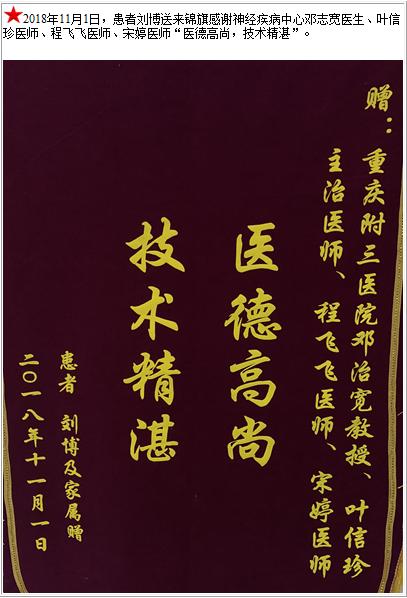 2018年11月1日，患者刘博送来锦旗感谢神经疾病中心邓志宽医生、叶信
珍医师、程飞飞医师、宋婷医师“医德高尚，技术精湛”。
赠：
重庆附三医院邓治宽教授、叶信珍
主治医师、程飞飞医师、宋婷医师
医德高尚
技术精湛
患者 刘博及家属赠
二〇一八年十一月一日